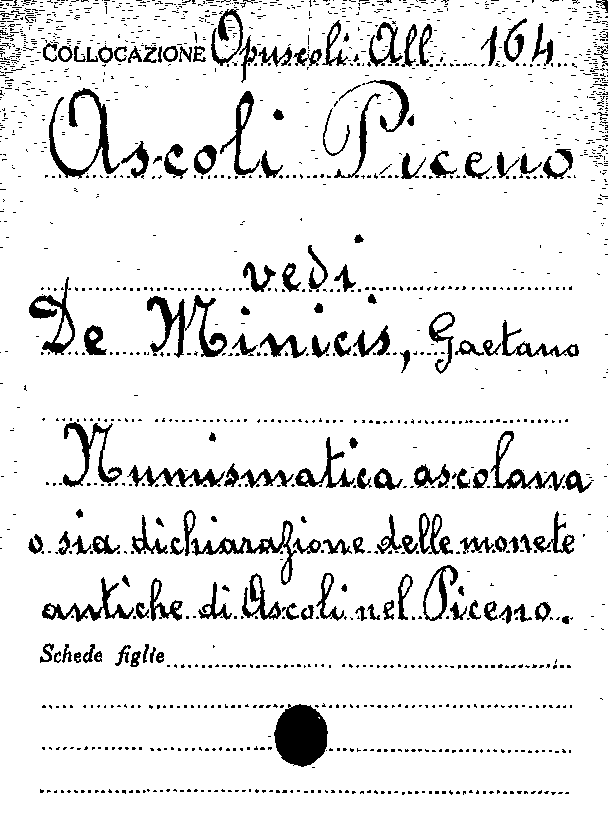 COLLOCAZIONE Opuscoli. All. 164
Ascoli Piceno
vedi
De Minicis, Gaetano
Numismatica ascolana
o sia dichiarazione delle monete
antiche di Ascoli nel Piceno.
Schede figlie